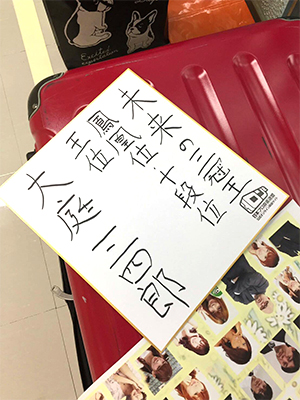 未来の三冠王
鳳凰位 十段位
王位
大庭三四郎